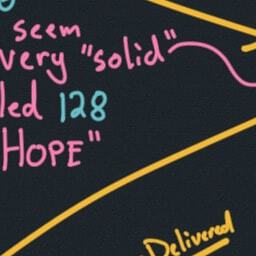 seem
very "solid"
led 128
HOPE"
Delivered